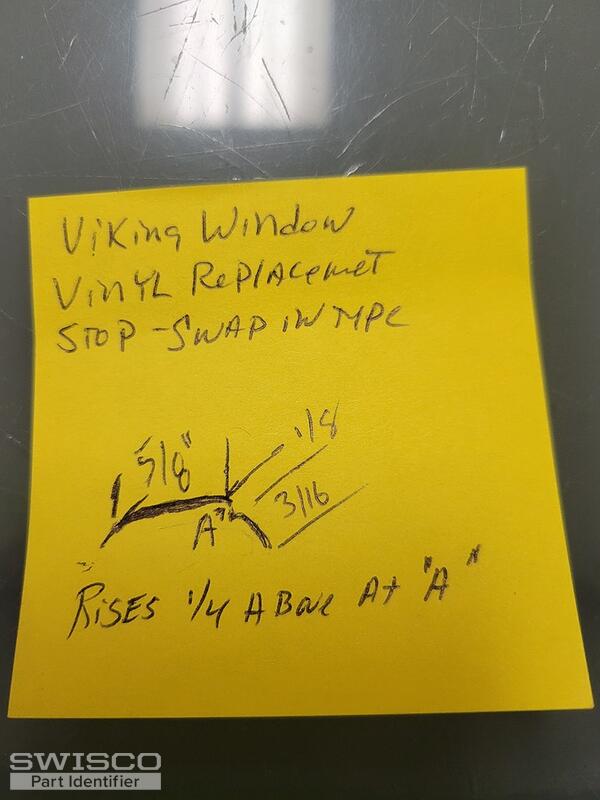 Viking Window
Vinyl Replacemet
STOP - SWAP IN TYPE
5/8"
1/8
3/16
A
RISES 1/4 ABove At "A"
SWISCO
Part Identifier